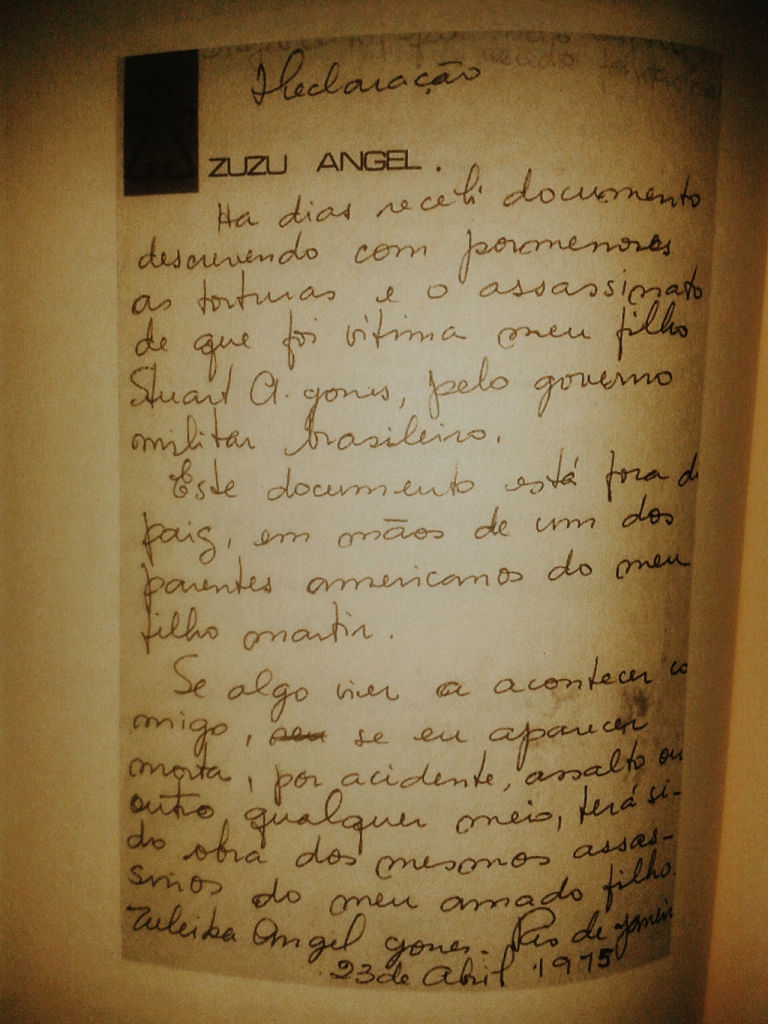 Declaração
ZUZU ANGEL.
Ha dias recebi documento
descrevendo com pormenores
as torturas e o assassinato
de que foi vitima meu filho
Stuart A. gomes, pelo governo
militar brasileiro.
Este documento está fora d
paiz, em mãos de um dos
parentes americanos do meu
filho martir.
Se algo vier a acontecer co
migo, se eu aparecer
morta, por acidente, assalto ou
outro qualquer meio, terá si-
do obra dos mesmos assas-
sinos do meu amado filho.
Zuleika Angel gomes. Rio de janeir
23 de Abril 1975